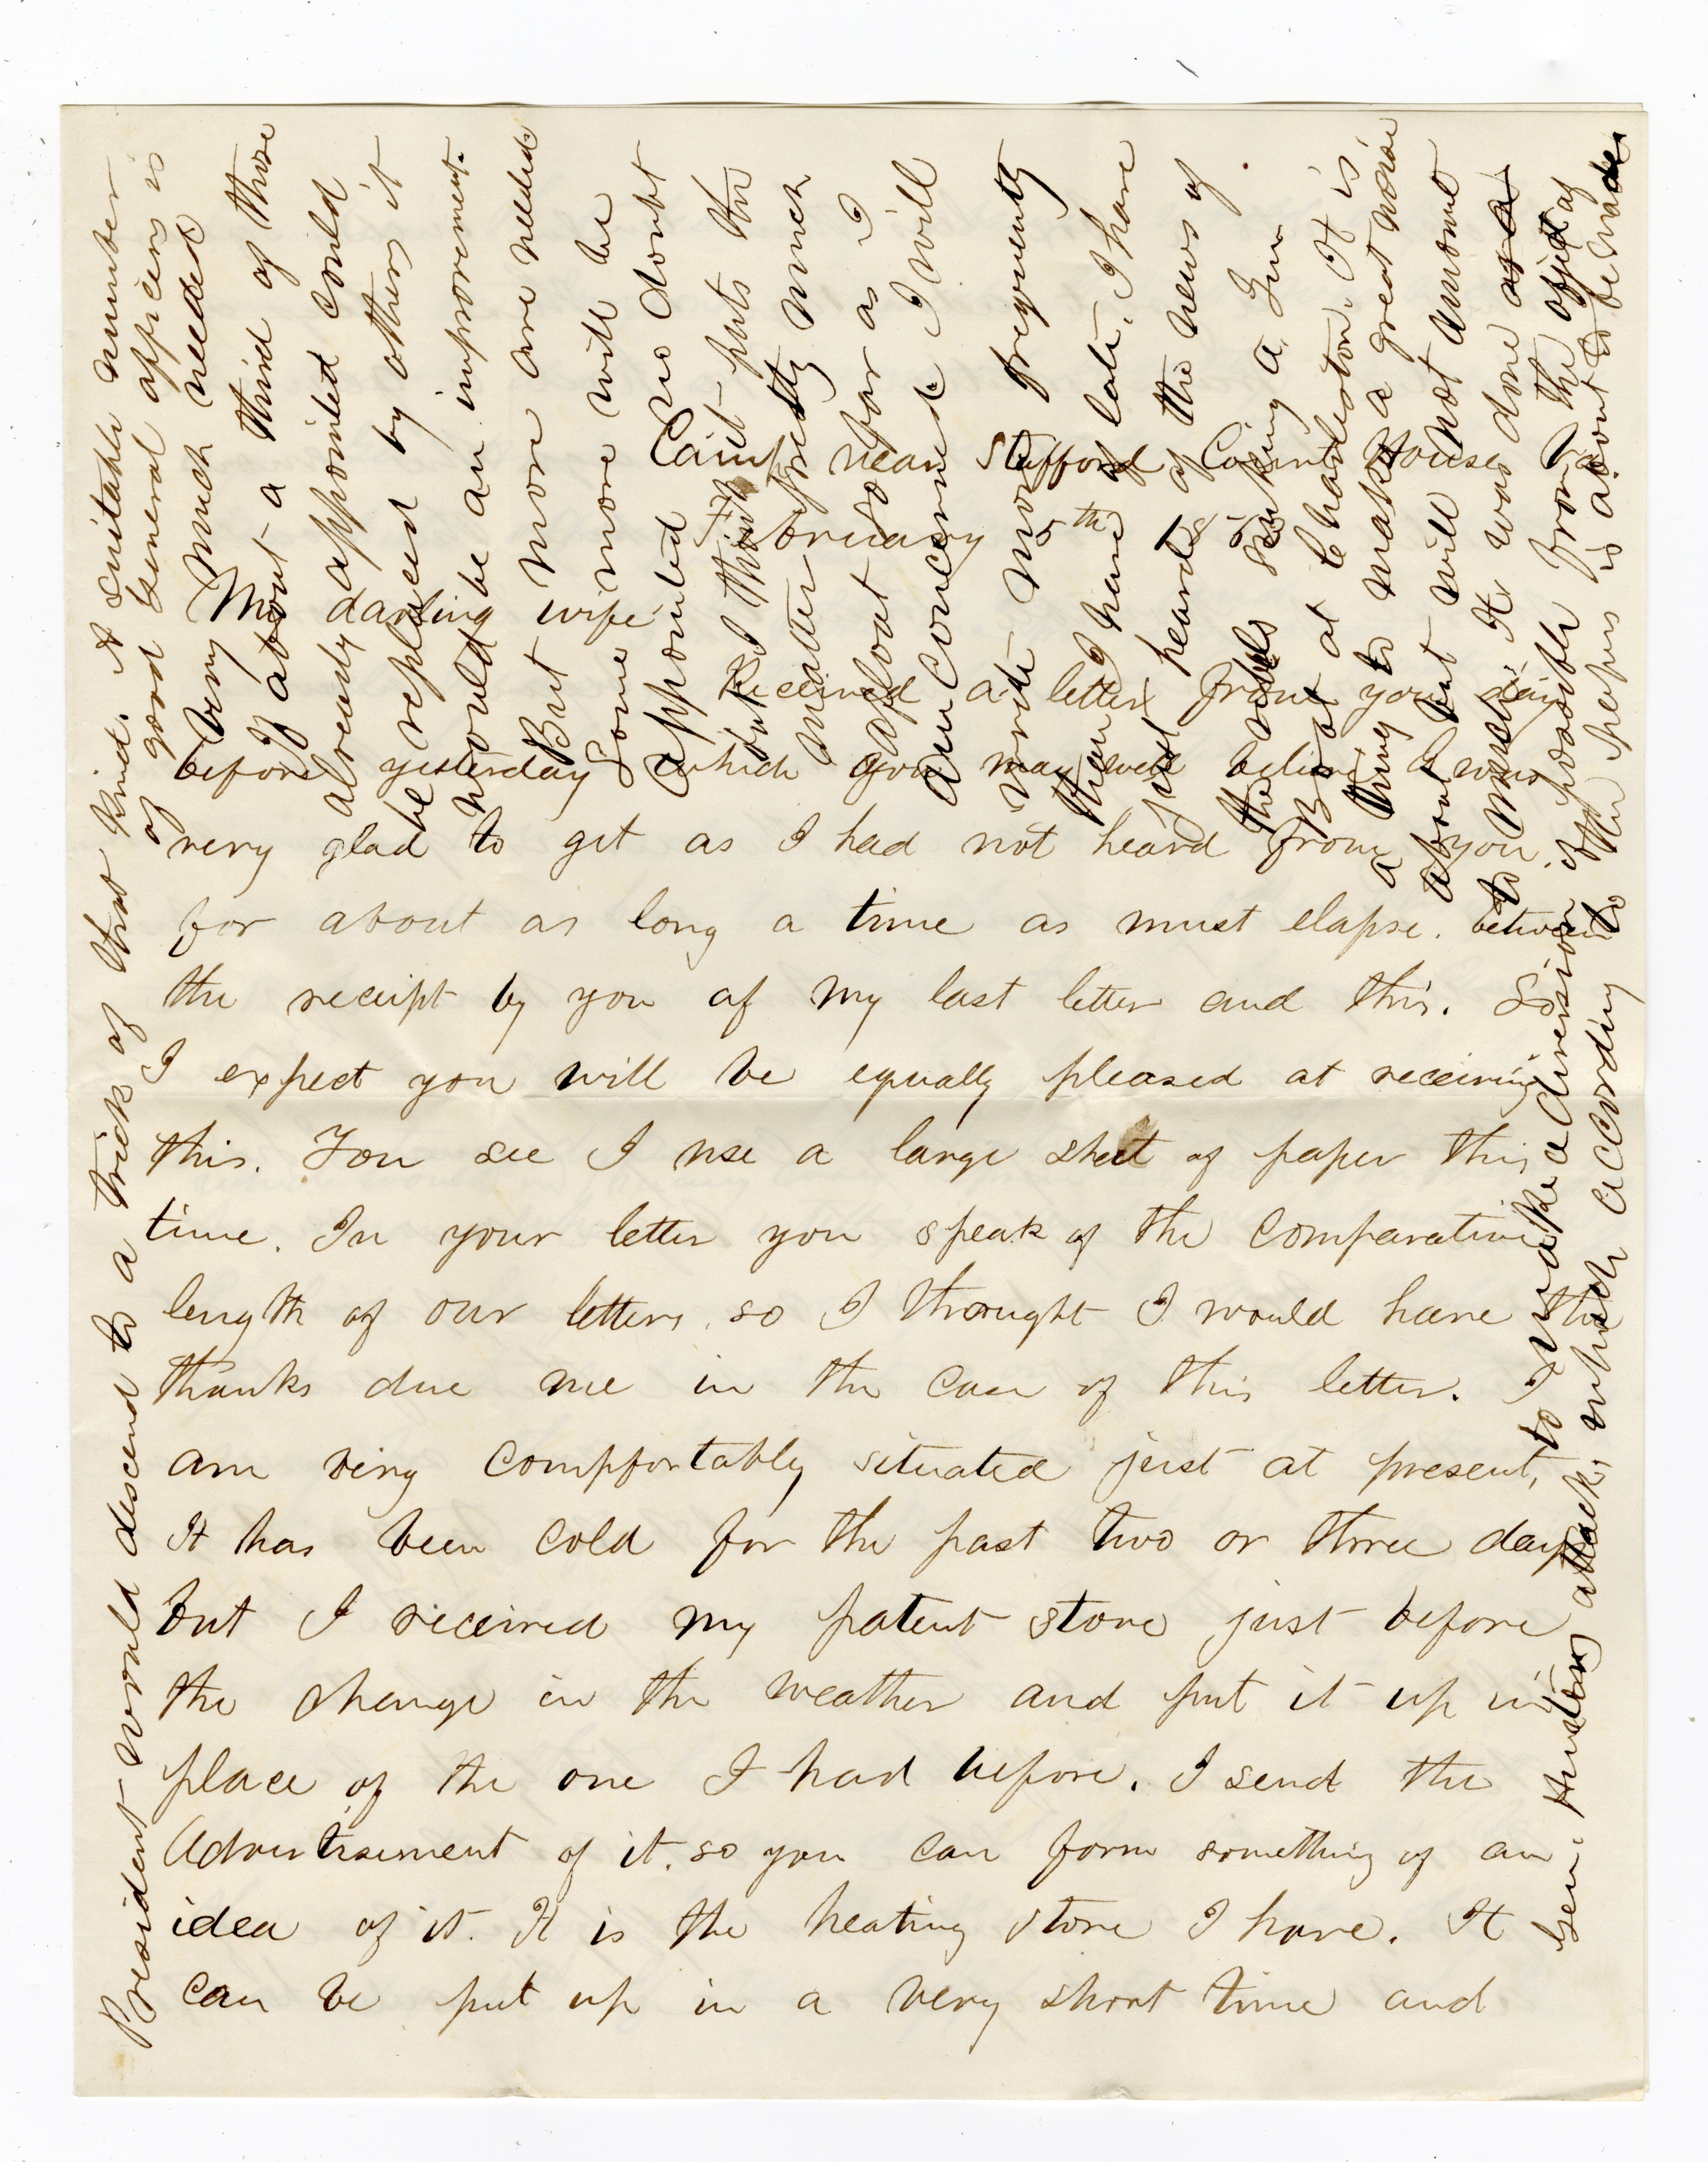 Camp near Stafford Court House
February 5th 1863
My darling wife
Received a letter from you day
before yesterday which you may well believe I was
very glad to get as I had not heard from you
for about as long a time as must elapse. between
the receipt by you of my last letter and this. So
I expect you will be equally pleased at receiving
this. You see I use a large sheet of paper this
time. In your letter you speak of the comparative
length of our letters. so I thought I would have the
thanks due me in the case of this letter. I
am very compfortably situated just at present,
It has been cold for the past two or three days
but I received my patent stove just before
the change in the weather and put it up in
place of the one I had before. I send the
Advertisement of it. so you can form something of an
idea of it. It is the heating stove I have. It
can be put up in a very short time and
President would descend to a trick of that kind. A suitable number
of good General officers is
very much needed
If about a third of those
already appointed could
be replaced by others it
would be an improvement.
But more are needed
Some more will be
appointed no doubt
but I think it puts the
matter pretty much
afloat so far as I
am concerned I will
write more frequently
than I have of late. I have
just heard of the news of
the rebels sinking a Gun
Boat at Charleston. It is
a thing to make a great noise
about but will not amount
to much. It was done as a
if possible from the object of
to make a diversion
Gen. Hunters attack, which according to the papers is about to be made.